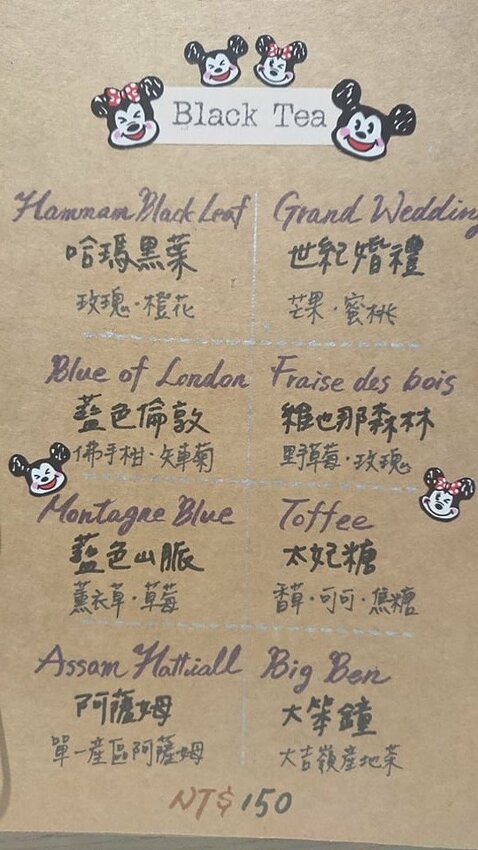 Black Tea
Hammam Black Leaf
哈瑪黑葉
玫瑰·橙花
Grand Wedding
世紀婚禮
芒果·蜜桃
Blue of London
藍色倫敦
佛手柑·矢車菊
Fraise des bois
維也那森林
野草莓·玫瑰
Montagne Blue
藍色山脈
薰衣草·草莓
Toffee
太妃糖
香草·可可·焦糖
Assam Hattiall
阿薩姆
單一產區阿薩姆
Big Ben
大笨鐘
大吉嶺產地茶
NT$150